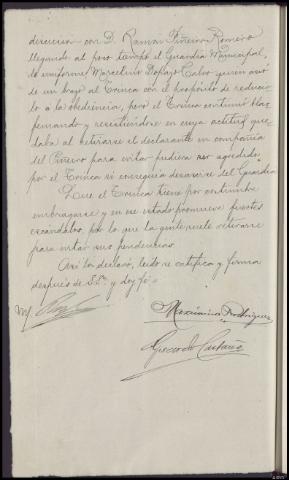 dirección con D. Ramon Piñeiro Romero
llegando al poco tiempo el Guardia Municipal,
de uniforme, Marcelino Dopazo Calvo quien asió
de un brazo al Trinca con el propósito de reducir-
lo a la obediencia, pero el Trinca continuó blas-
femando y resistiéndose en cuya actitud que-
daba al retirarse el declarante en compañía
del Piñeiro para evitar pudiera ser agredido
por el Trinca si conseguía desasirse del Guardia
Que el Trinca tiene por costumbre
embriagarse y en ese estado promueve fuertes
escándalos por lo que la gente suele retirarse
para evitar sus pendencias.
Así lo declaró, leido se ratifica y firma
después de S.S.ª y doy fé =
Maximino Rodriguez
Gerardo